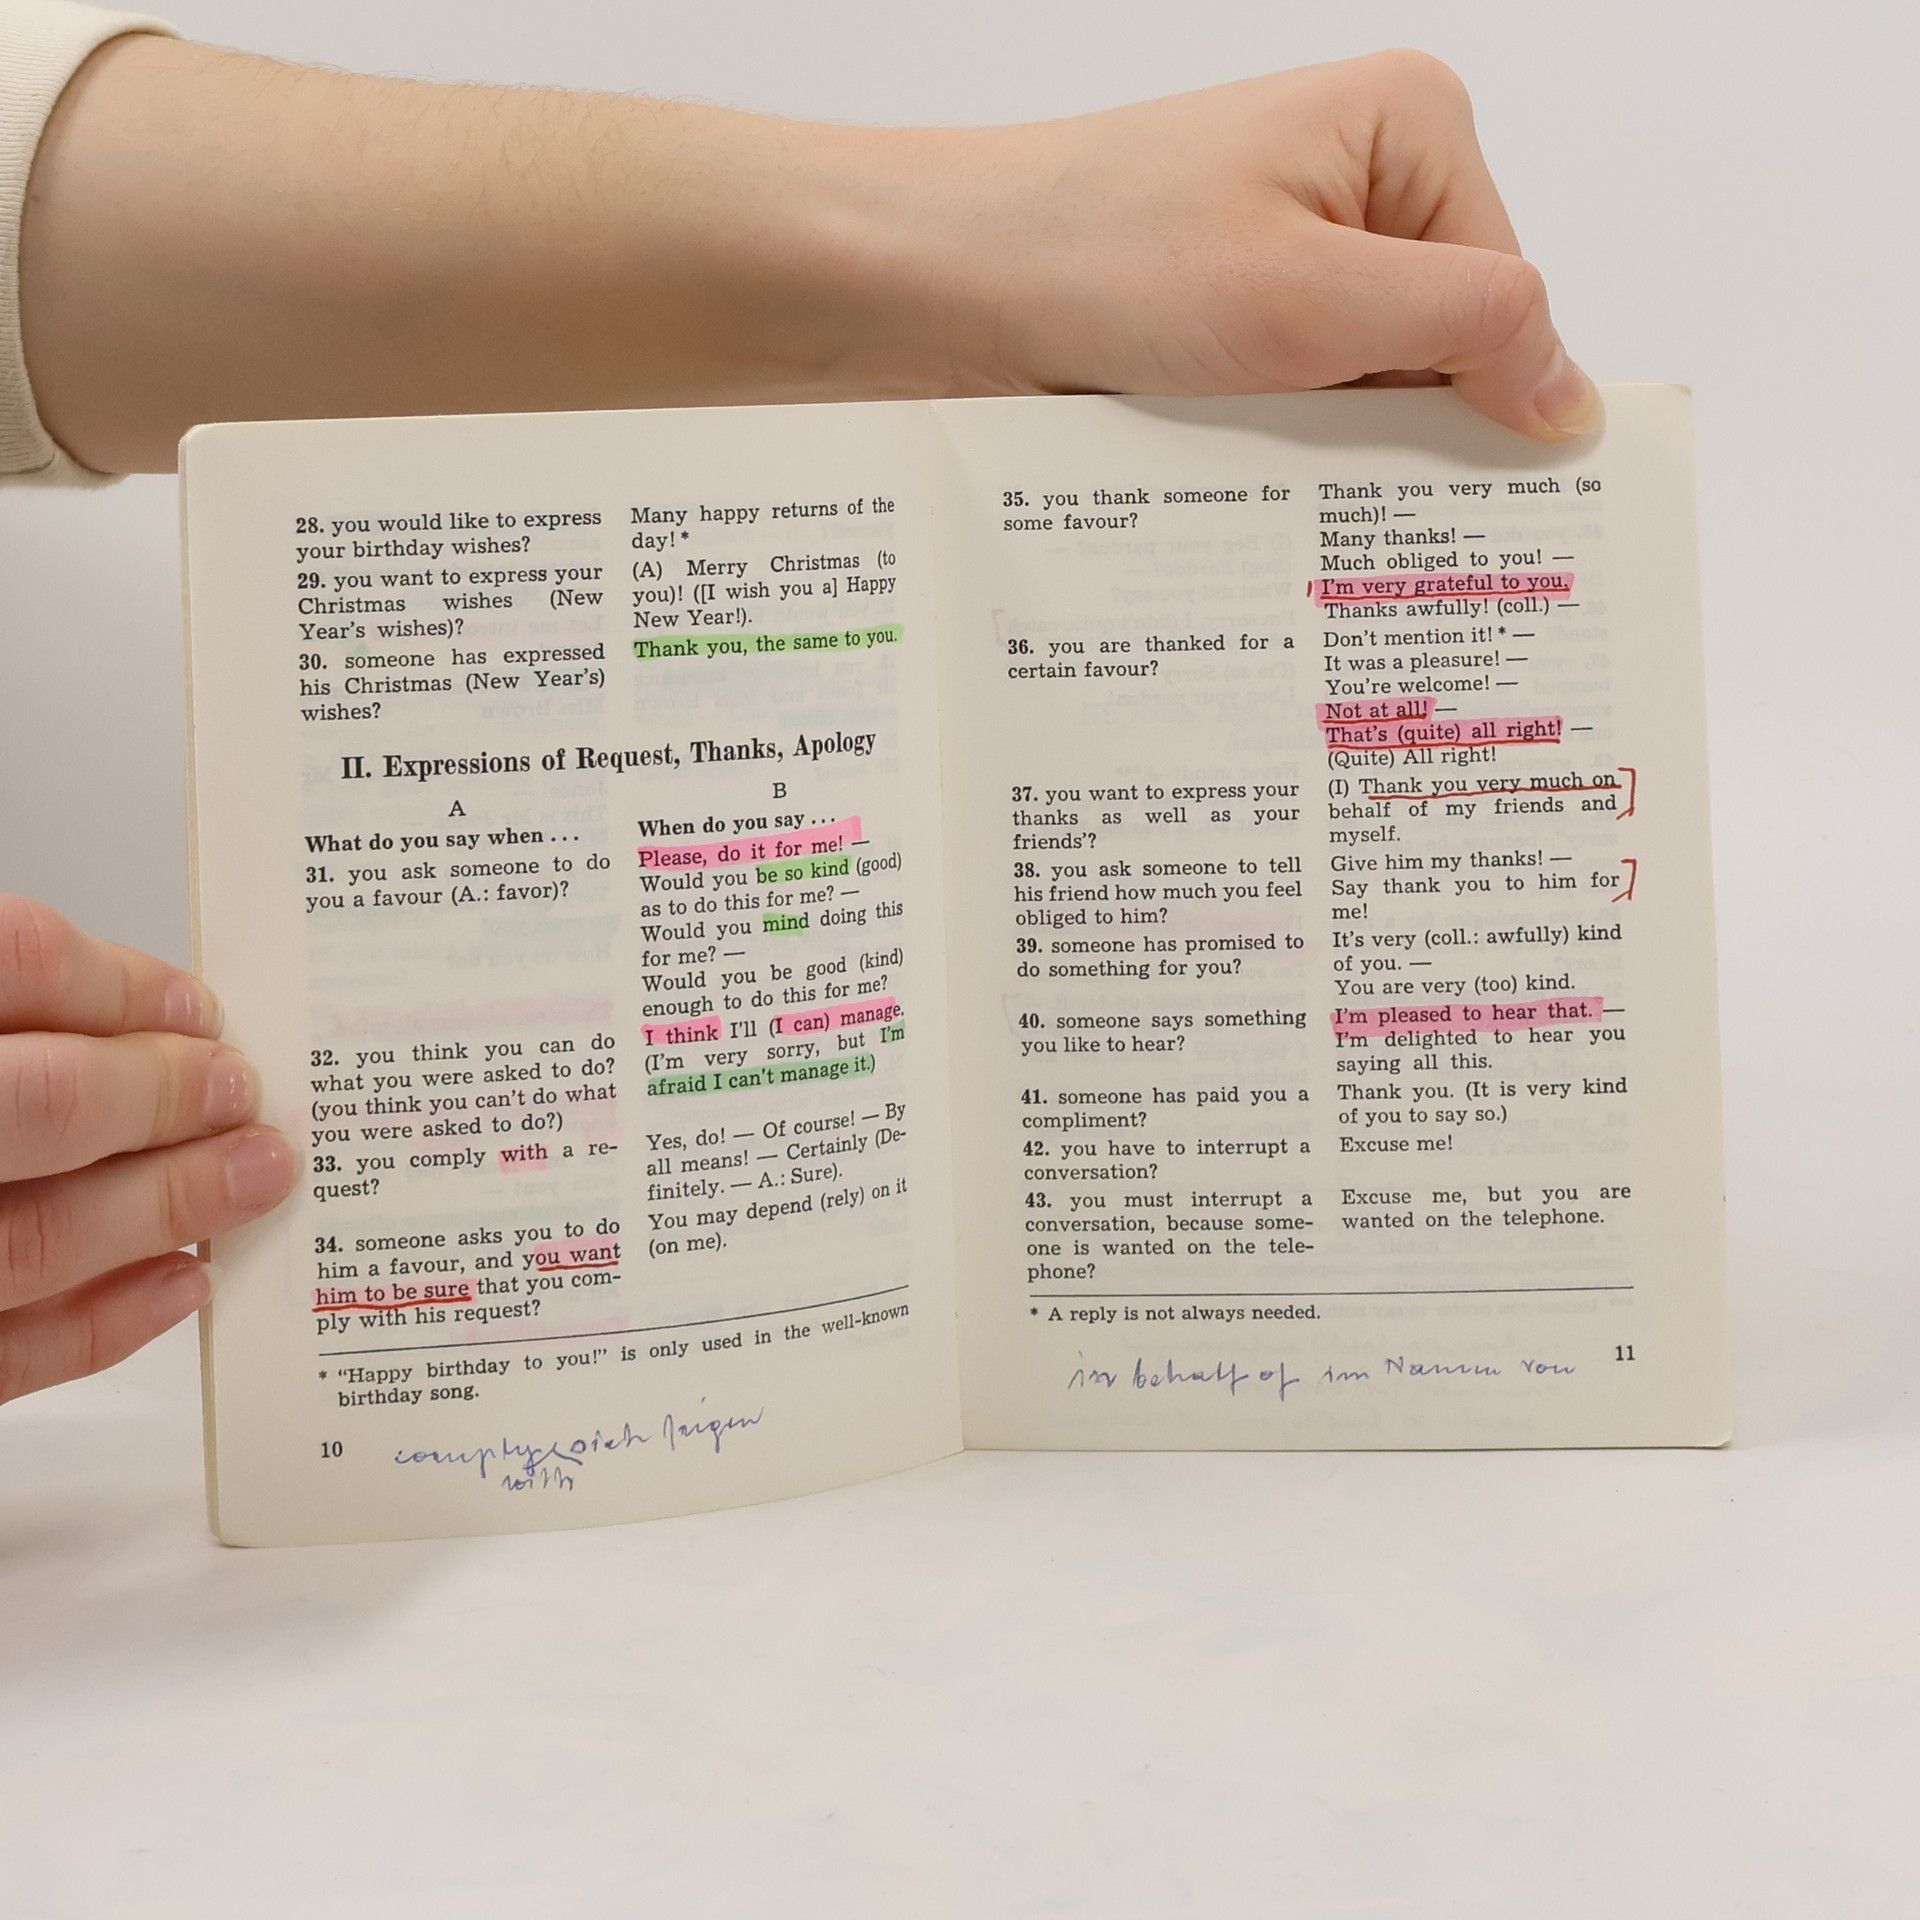 28. you would like to express
your birthday wishes?
29. you want to express your
Christmas wishes (New
Year's wishes)?
30. someone has expressed
his Christmas (New Year's)
wishes?
Many happy returns of the
day! *
(A) Merry Christmas (to
you)! ([I wish you a] Happy
New Year!).
Thank you, the same to you.
II. Expressions of Request, Thanks, Apology
A
What do you say when ...
31. you ask someone to do
you a favour (A.: favor)?
32. you think you can do
what you were asked to do?
(you think you can't do what
you were asked to do?)
33. you comply with a re-
quest?
34. someone asks you to do
him a favour, and you want
him to be sure that you com-
ply with his request?
B
When do you say ...
Please, do it for me! —
Would you be so kind (good)
as to do this for me? —
Would you mind doing this
for me? —
Would you be good (kind)
enough to do this for me?
I think I'll (I can) manage.
(I'm very sorry, but I'm
afraid I can't manage it.)
Yes, do! — Of course! — By
all means! — Certainly (De-
finitely. — A.: Sure).
You may depend (rely) on it
(on me).
* "Happy birthday to you!" is only used in the well-known
birthday song.
10
comply sich fügen
with
35. you thank someone for
some favour?
36. you are thanked for a
certain favour?
37. you want to express your
thanks as well as your
friends'?
38. you ask someone to tell
his friend how much you feel
obliged to him?
39. someone has promised to
do something for you?
40. someone says something
you like to hear?
41. someone has paid you a
compliment?
42. you have to interrupt a
conversation?
43. you must interrupt a
conversation, because some-
one is wanted on the tele-
phone?
Thank you very much (so
much)! —
Many thanks! —
Much obliged to you! —
I'm very grateful to you.
Thanks awfully! (coll.) —
Don't mention it! * —
It was a pleasure! —
You're welcome! —
Not at all! —
That's (quite) all right! —
(Quite) All right!
(I) Thank you very much on
behalf of my friends and
myself.
Give him my thanks! —
Say thank you to him for
me!
It's very (coll.: awfully) kind
of you. —
You are very (too) kind.
I'm pleased to hear that. —
I'm delighted to hear you
saying all this.
Thank you. (It is very kind
of you to say so.)
Excuse me!
Excuse me, but you are
wanted on the telephone.
* A reply is not always needed.
11
in behalf of im Namen von